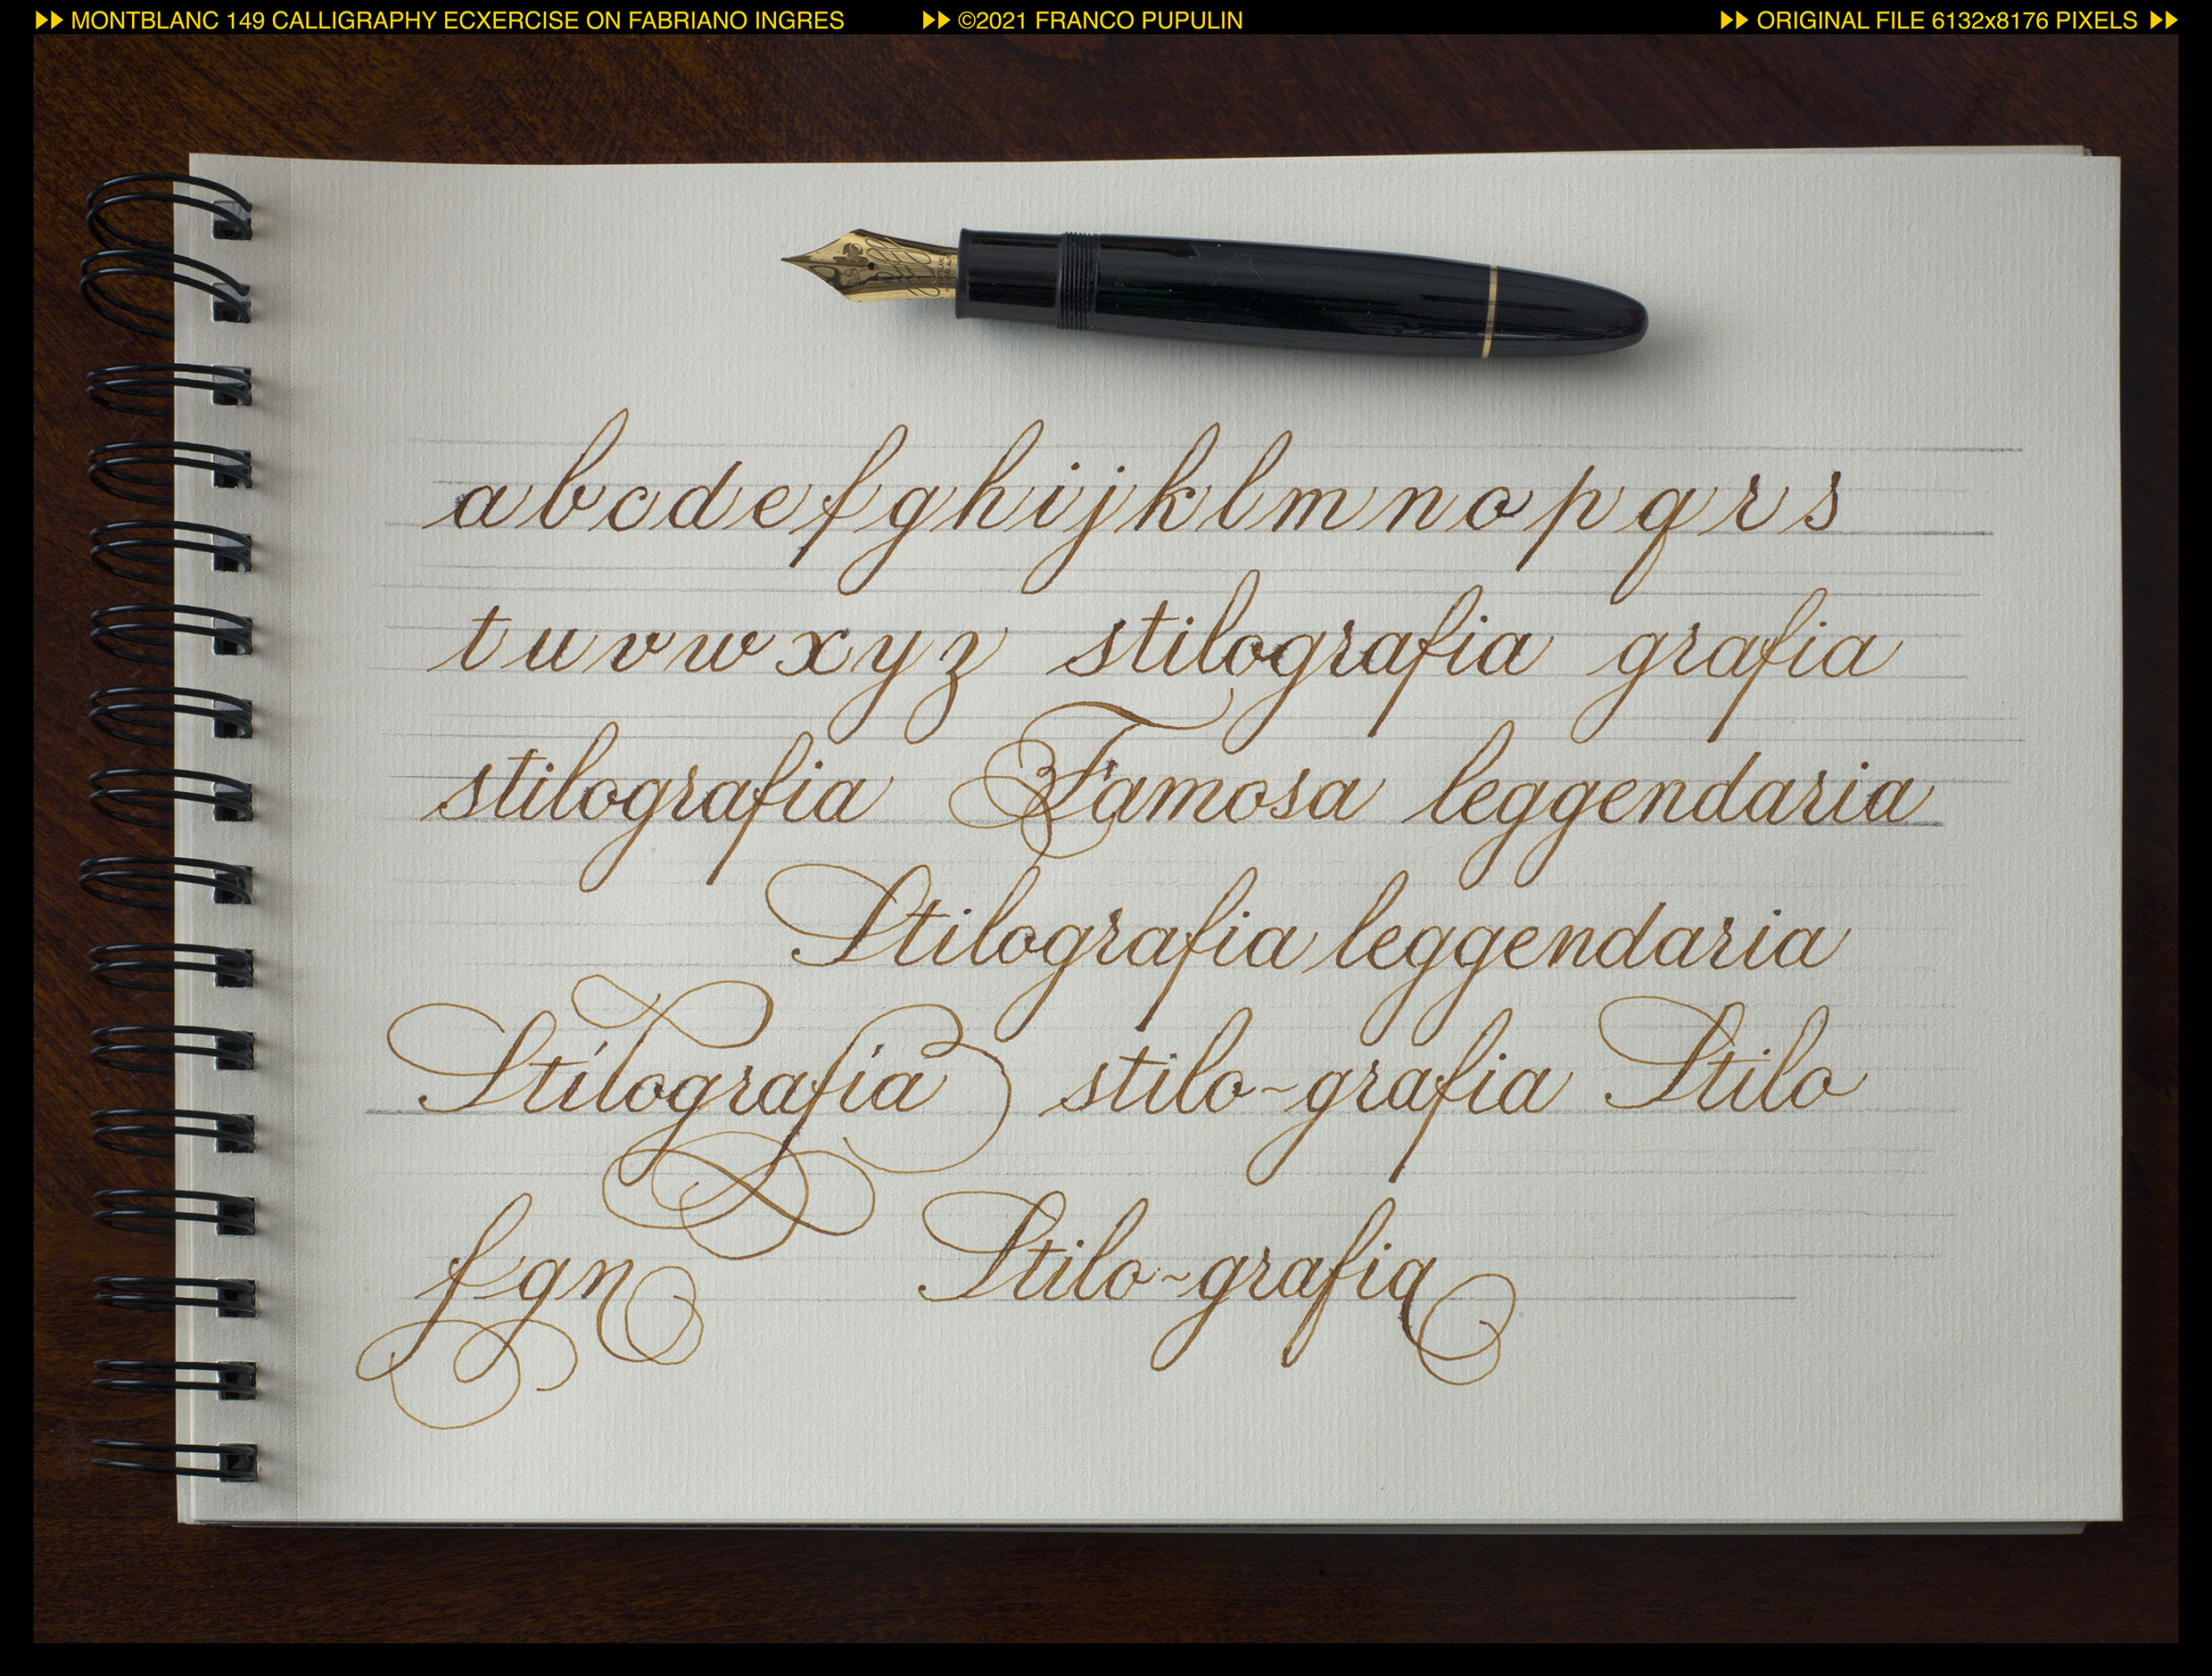 MONTBLANC 149 CALLIGRAPHY ECXERCISE ON FABRIANO INGRES ©2021 FRANCO PUPULIN ORIGINAL FILE 6132x8176 PIXELS
a b c d e f g h i j k l m n o p q r s
t u v w x y z stilografia grafia
stilografia Famosa leggendaria
Stilografia leggendaria
Stilografia stilo~grafia Stilo
f g n Stilo~grafia